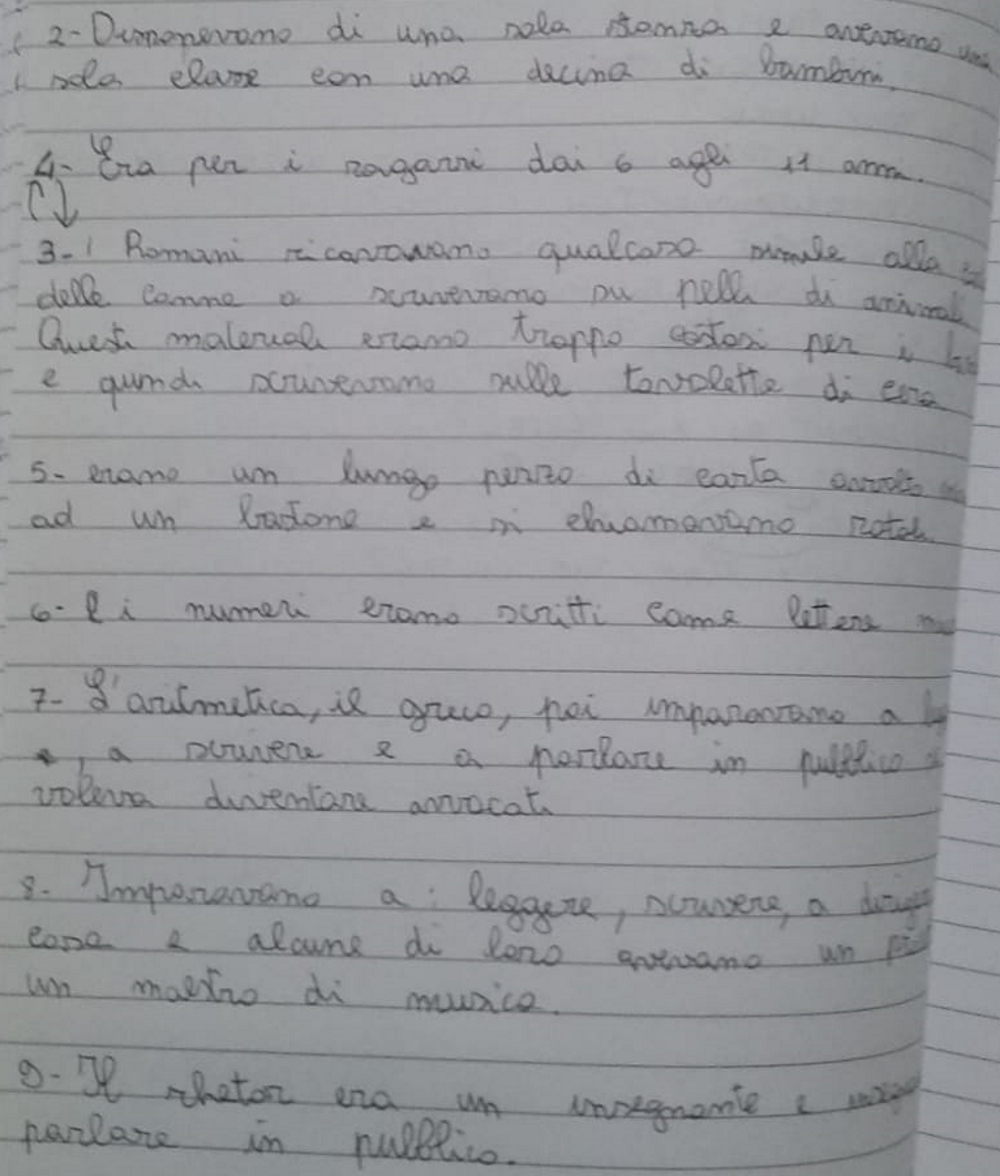 2- Disponevano di una sola stanza e avevano una
sola classe con una decina di bambini.
4- Era per i ragazzi dai 6 agli 11 anni.
3- I Romani ricavavano qualcosa simile alla
delle canne o scrivevano su pelli di animali
Questi materiali erano troppo costosi per i
e quindi scrivevano sulle tavolette di cera
5- erano un lungo pezzo di carta avvolto
ad un bastone e si chiamavano rotoli
6- E i numeri erano scritti come lettere
7- L'aritmetica, il greco, poi imparavano a
, a scrivere e a parlare in pubblico
voleva diventare avvocato
8- Imparavano a: leggere, scrivere, a
casa e alcune di loro avevano un
un maestro di musica.
9- Il rhetor era un insegnante e
parlare in pubblico.